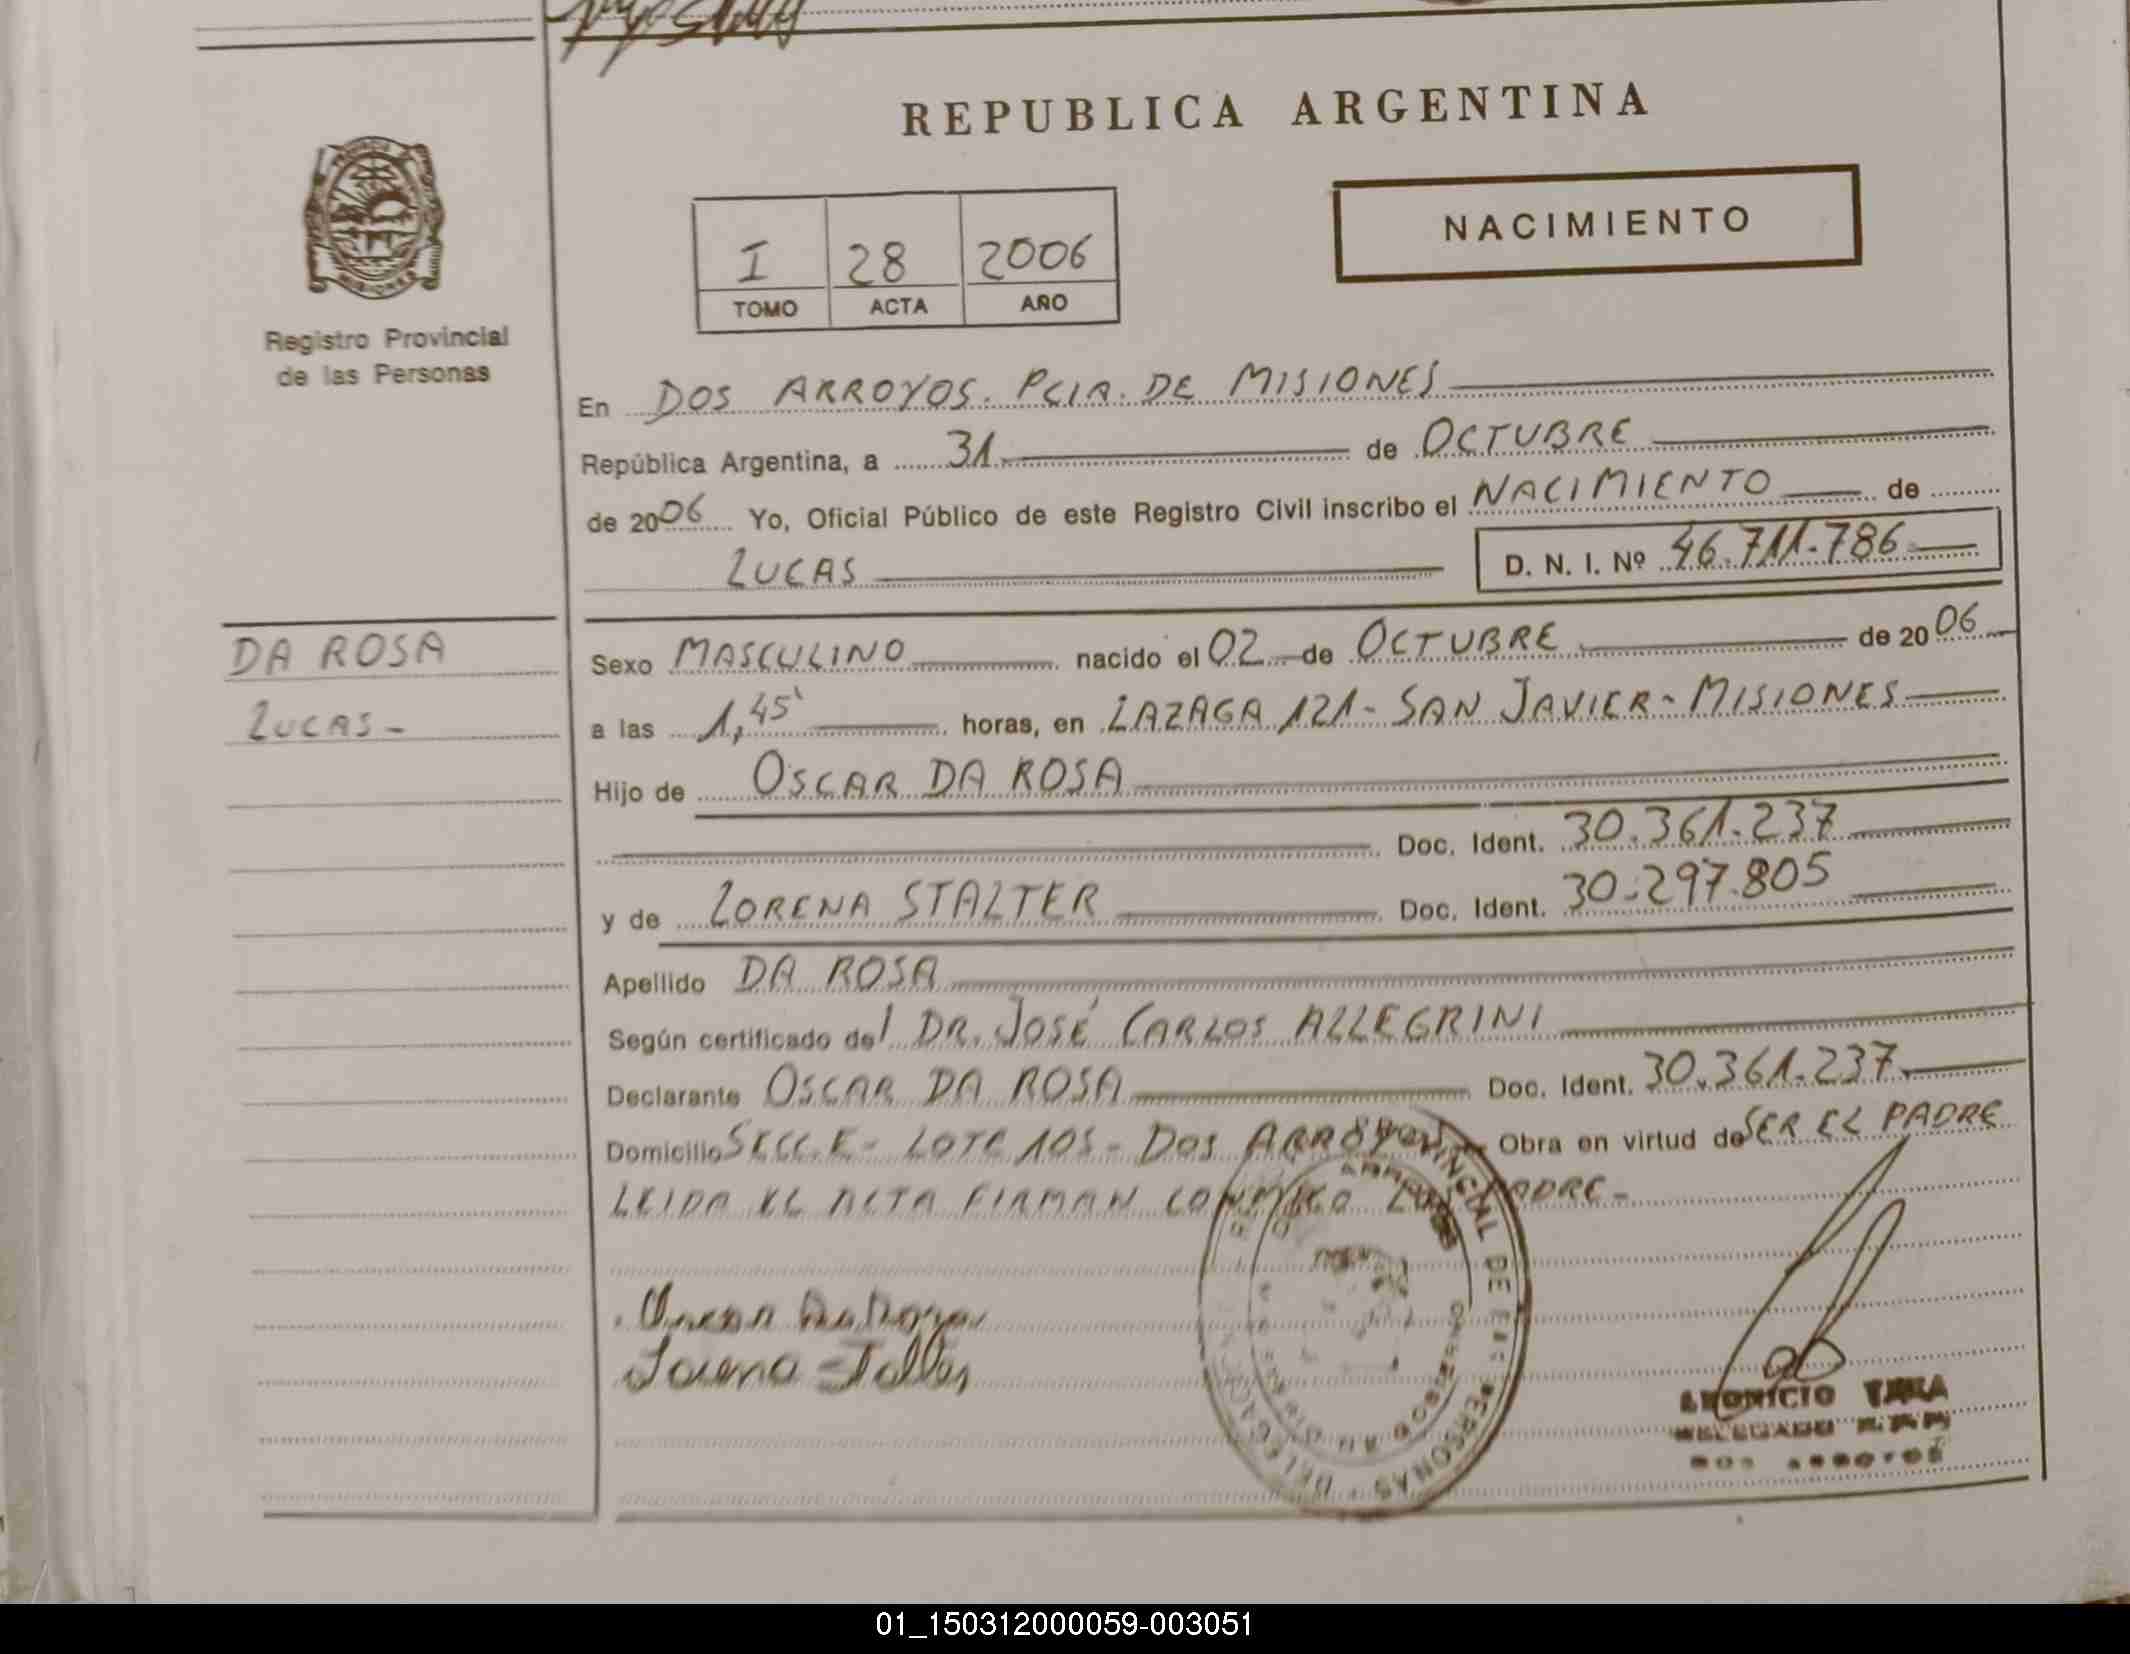 REPUBLICA ARGENTINA
NACIMIENTO
I 28 2006
TOMO ACTA AÑO
Registro Provincial
de las Personas
En DOS ARROYOS. PCIA. DE MISIONES
República Argentina, a 31 de OCTUBRE
de 2006 Yo, Oficial Público de este Registro Civil inscribo el NACIMIENTO de
LUCAS D. N. I. Nº 46.711.786
DA ROSA
LUCAS-
Sexo MASCULINO nacido el 02 de OCTUBRE de 2006
a las 1,45' horas, en LAZAGA 121- SAN JAVIER- MISIONES
Hijo de OSCAR DA ROSA
Doc. Ident. 30.361.237
y de LORENA STALTER Doc. Ident. 30.297.805
Apellido DA ROSA
Según certificado del DR. JOSÉ CARLOS ALLEGRINI
Declarante OSCAR DA ROSA Doc. Ident. 30.361.237
Domicilio SECC. E- LOTE 105- DOS ARROYOS Obra en virtud de SER EL PADRE
LEIDA EL ACTA FIRMAN CONMIGO PADRE-
PROVINCIAL DE LAS PERSONAS
DOS ARROYOS
01_150312000059-003051